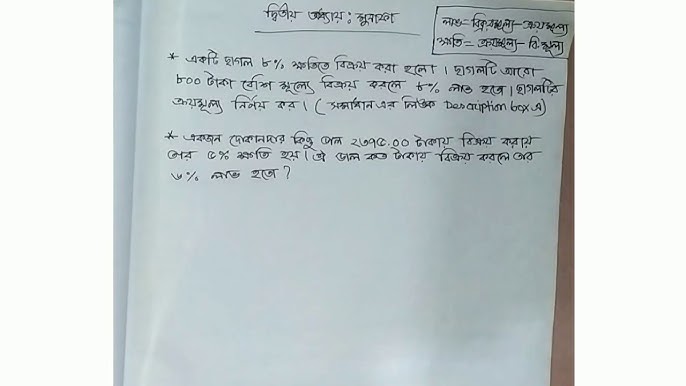 দ্বিতীয় অধ্যায় : মুনাফা
লাভ = বিক্রয়মূল্য - ক্রয়মূল্য
ক্ষতি = ক্রয়মূল্য - বি: মূল্য
* একটি ছাগল ৮% ক্ষতিতে বিক্রয় করা হলো । ছাগলটি আরো
৮০০ টাকা বেশি মূল্যে বিক্রয় করলে ৮% লাভ হতো । ছাগলটির
ক্রয়মূল্য নির্ণয় কর । ( সমাধান এর লিংক Description box এ )
* একজন দোকানদার কিছু ডাল ২৩৭৫.০০ টাকায় বিক্রয় করায়
তার ৫% ক্ষতি হয় । ঐ ডাল কত টাকায় বিক্রয় করলে তার
৬% লাভ হতো ?